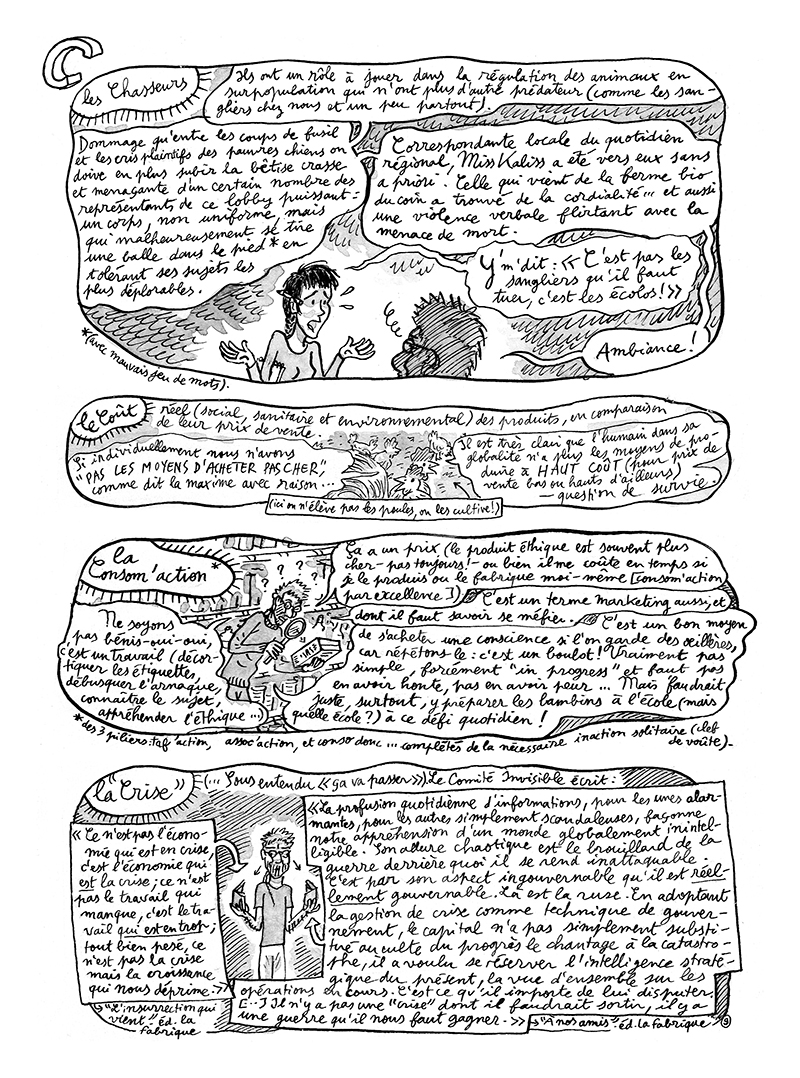 C
les Chasseurs
Ils ont un rôle à jouer dans la régulation des animaux en
surpopulation qui n'ont plus d'autre prédateur (comme les san-
gliers chez nous et un peu partout).
Dommage qu'entre les coups de fusil
et les cris plaintifs des pauvres chiens on
doive en plus subir la bêtise crasse
et menaçante d'un certain nombre des
représentants de ce lobby puissant :
un corps, non uniforme, mais
qui malheureusement se tire
une balle dans le pied* en
tolérant ses sujets les
plus déplorables.
Correspondante locale du quotidien
régional, Miss Kaliss a été vers eux sans
a priori. Celle qui vient de la ferme bio
du coin a trouvé de la cordialité... et aussi
une violence verbale flirtant avec la
menace de mort.
Y m'dit : « C'est pas les
sangliers qu'il faut
tuer, c'est les écolos ! »
Ambiance !
*(avec mauvais jeu de mots).
le Coût
réel (social, sanitaire et environnemental) des produits, en comparaison
de leur prix de vente.
Si individuellement nous n'avons
"PAS LES MOYENS D'ACHETER PAS CHER",
comme dit la maxime avec raison...
Il est très clair que l'humain dans sa
globalité n'a plus les moyens de pro-
duire à HAUT COÛT (pour prix de
vente bas ou hauts d'ailleurs)
— question de survie.
(ici on n'élève pas les poules, on les cultive !)
la
Consom'action*
Ça a un prix (le produit éthique est souvent plus
cher - pas toujours !- ou bien il me coûte en temps si
je le produis ou le fabrique moi-même [consom'action
par excellence !])
C'est un terme marketing aussi, et
dont il faut savoir se méfier.
C'est un bon moyen
de s'acheter une conscience si l'on garde des œillères,
car répétons le : c'est un boulot ! Vraiment pas
simple, forcément "in progress" et faut pas
en avoir honte, pas en avoir peur... Mais faudrait
juste, surtout, y préparer les lambins à l'école (mais
quelle école ?) à ce défi quotidien !
Ne soyons
pas bénis-oui-oui,
c'est un travail (décor-
tiquer les étiquettes,
débusquer l'arnaque,
connaître le sujet,
appréhender l'éthique...)
? ? ? ?
*des 3 piliers : taf'action, assoc'action, et conso donc... complétés de la nécessaire inaction solitaire (clef
de voûte).
la "Crise"
(... Sous entendu « ça va passer »). Le Comité Invisible écrit :
« Ce n'est pas l'écono-
mie qui est en crise,
c'est l'économie qui
est la crise ; ce n'est
pas le travail qui
manque, c'est le tra-
vail qui est en trop ;
tout bien pesé, ce
n'est pas la crise
mais la croissance
qui nous déprime. »
"L'insurrection qui
vient" éd. la
fabrique
« La profusion quotidienne d'informations, pour les unes alar-
mantes, pour les autres simplement scandaleuses, façonne
notre appréhension d'un monde globalement inintel-
ligible. Son allure chaotique est le brouillard de la
guerre derrière quoi il se rend inattaquable.
C'est par son aspect ingouvernable qu'il est réel-
lement gouvernable. Là est la ruse. En adoptant
la gestion de crise comme technique de gouver-
nement, le capital n'a pas simplement substi-
tué au culte du progrès le chantage à la catastro-
phe, il a voulu se réserver l'intelligence straté-
gique du présent, la vue d'ensemble sur les
opérations en cours. C'est ce qu'il importe de lui disputer.
[...] Il n'y a pas une "crise" dont il faudrait sortir, il y a
une guerre qu'il nous faut gagner. »
"A nos amis" éd. la fabrique
9